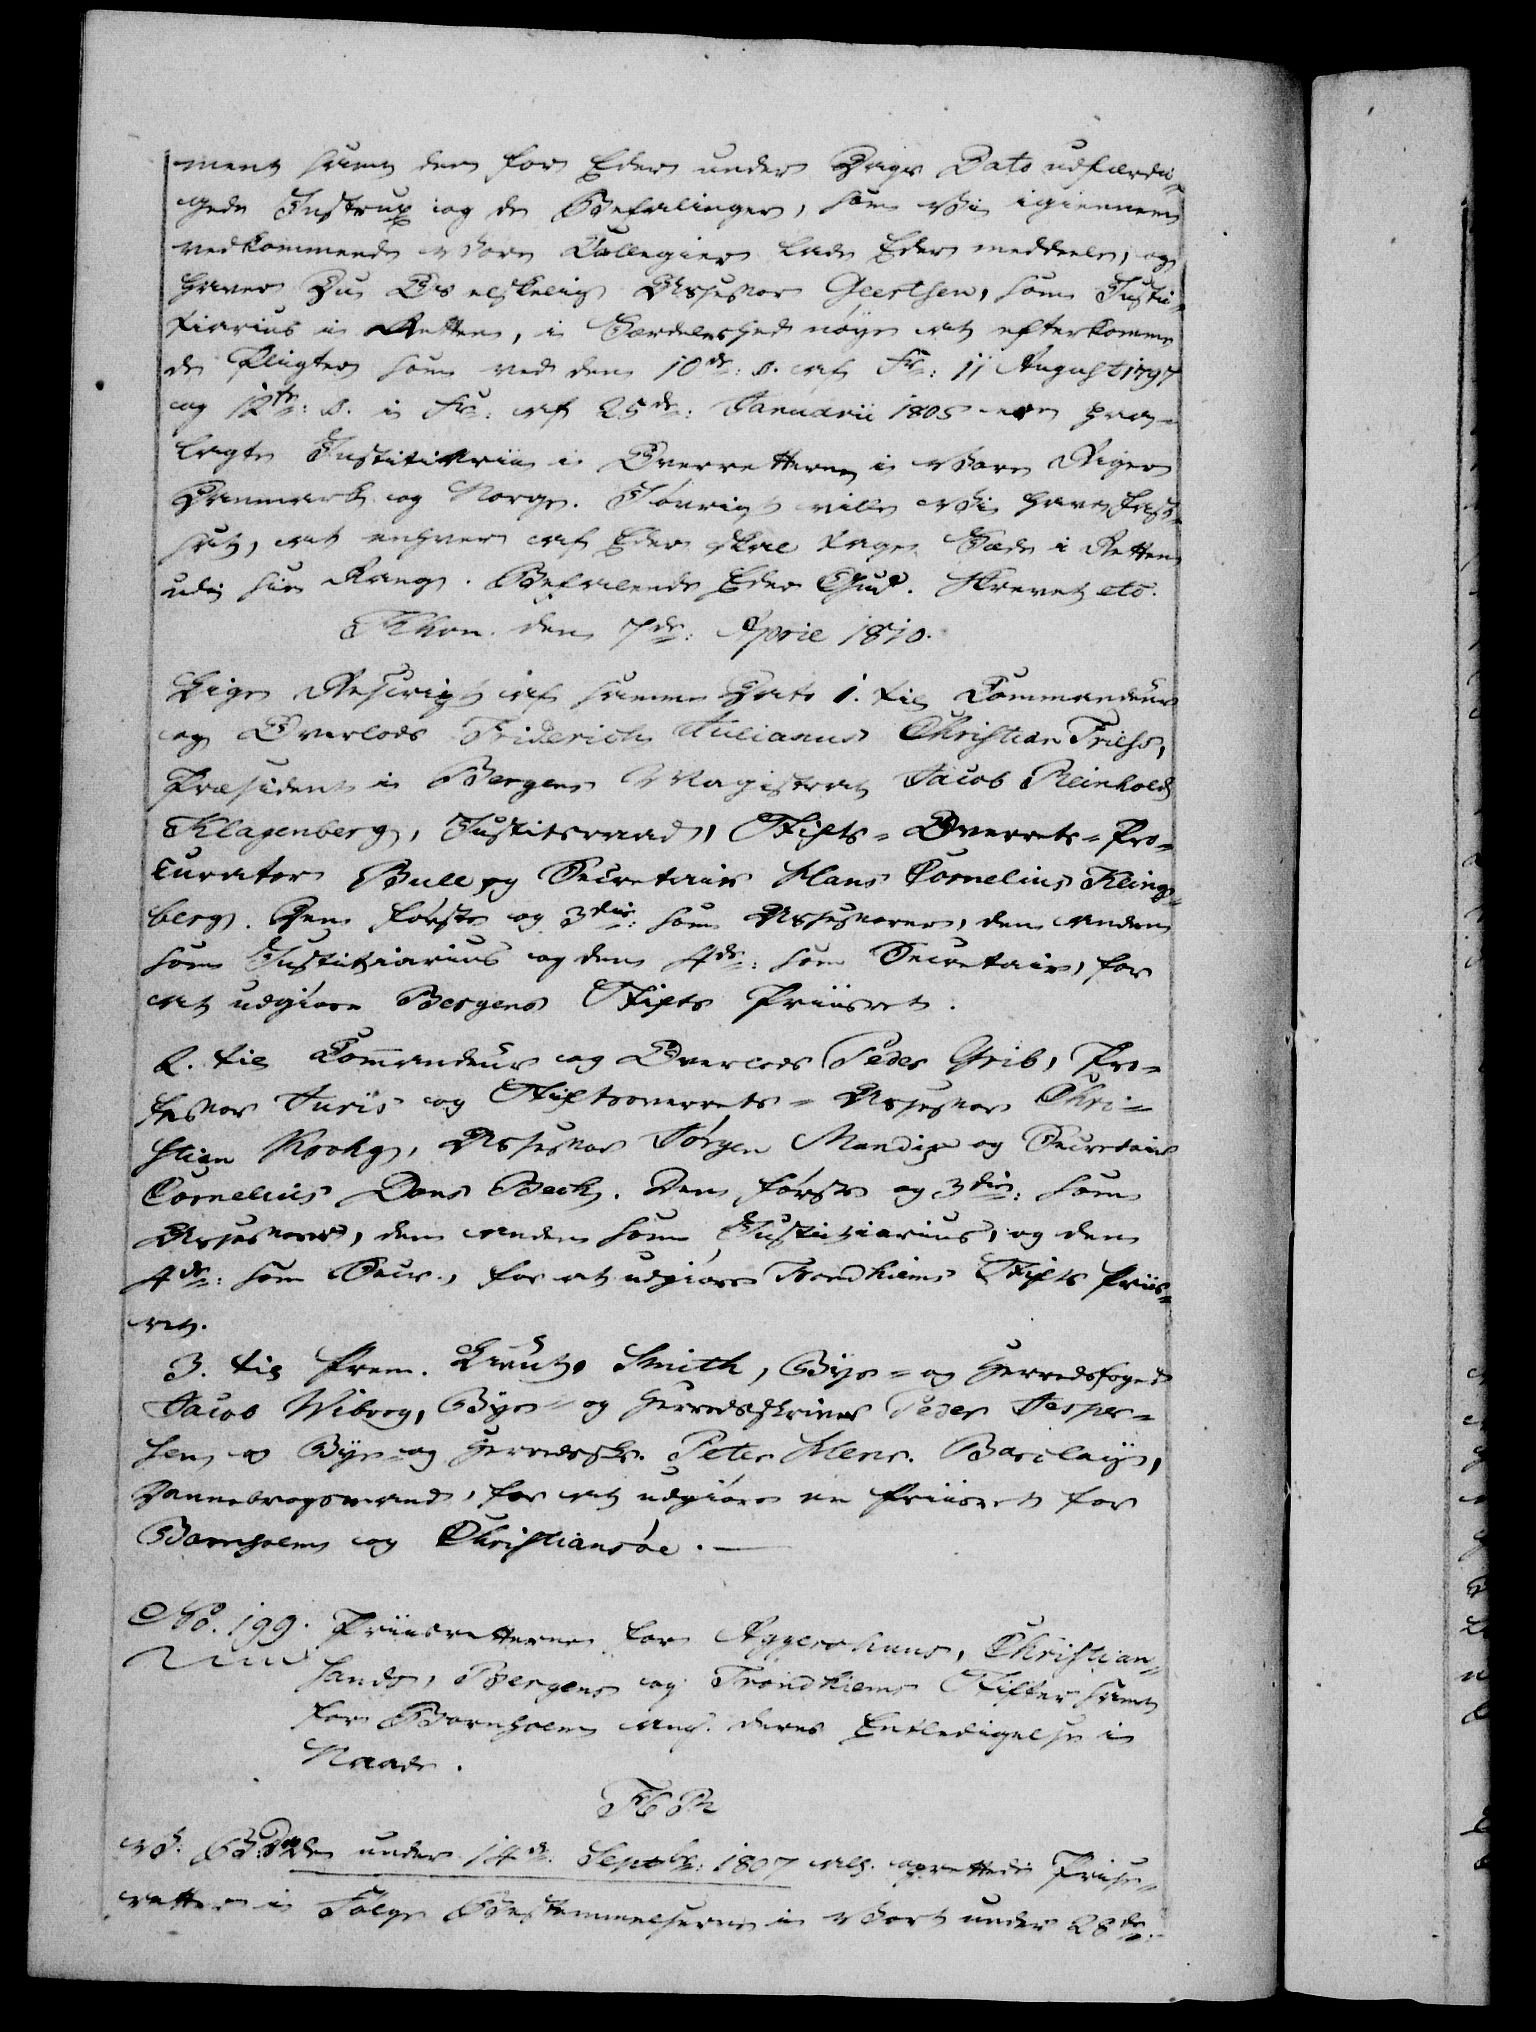 ment samt den for Eder under Dags Dato udfærdi-
gede Instrux og de Befalinger, som Vi igiennem
vedkommende Vore Collegier lade Eder meddeele, og
haver Du Os elskelig Assessor Geertsen, som Justi-
tiarius i Retten, i Særdeleshed nøye at efterkomme
de Pligter som ved den 10de: §. af Fr: 11 August 1797
og 12te: §. i Fr: af 25de: Januarii 1805 ere paa-
lagte Justitiarii i Overretterne i Vore Riger
Danmark og Norge. Iøvrigt ville Vi have fast-
sat, at enhver af Eder skal tage Sæde i Retten
udi sin Rang. Befalende Eder Gud. Skrevet etc.
Khvn. den 7de: April 1810.
Lige Rescript af samme Dato 1. til Commandeur
og Overlods Friderich Julianus Christian Triess,
Præsident i Bergens Magistrat Jacob Reinhold
Klagenberg, Justitsraad, Stifts-Overrets-Pro-
curator Bull og Secretair Hans Cornelius Kling-
berg. Den første og 3die: som Assessorer, den anden
som Justitiarius og den 4de: som Secretair, for
at udgiøre Bergens Stifts Priisret.
2. til Commandeur og Overlods Peder Grib, Pro-
fessor Juris og Stiftsoverrets-Assessor Chri-
stian Krohg, Assessor Jørgen Mandix og Secretair
Cornelius Dons Bech. Den første og 3die: som
Assessorer, den anden som Justitiarius, og den
4de: som Secr., for at udgiøre Trondhiems Stifts Priis-
ret.
3. til Prem. Lieut. Smith, Bye- og Herredsfoged
Jacob Wiborg, Bye- og Herredsskriver Peder Jesper-
sen og Bye- og Herredssk. Peter Barclay,
Dannebrogsmand, for at udgiøre en Priisret for
Bornholm og Christiansøe. —
No. 199. Priisretterne for Aggershuus, Christian-
sands, Bergens og Trondhiems Stifter samt
for Bornholm ang. deres Entledigelse i
Naade.
F6 R
V. G. T. Da den under 14de Septbr: 1807 oprettede Prise-
retter i Følge Bestemmelserne i Vort under 28de: